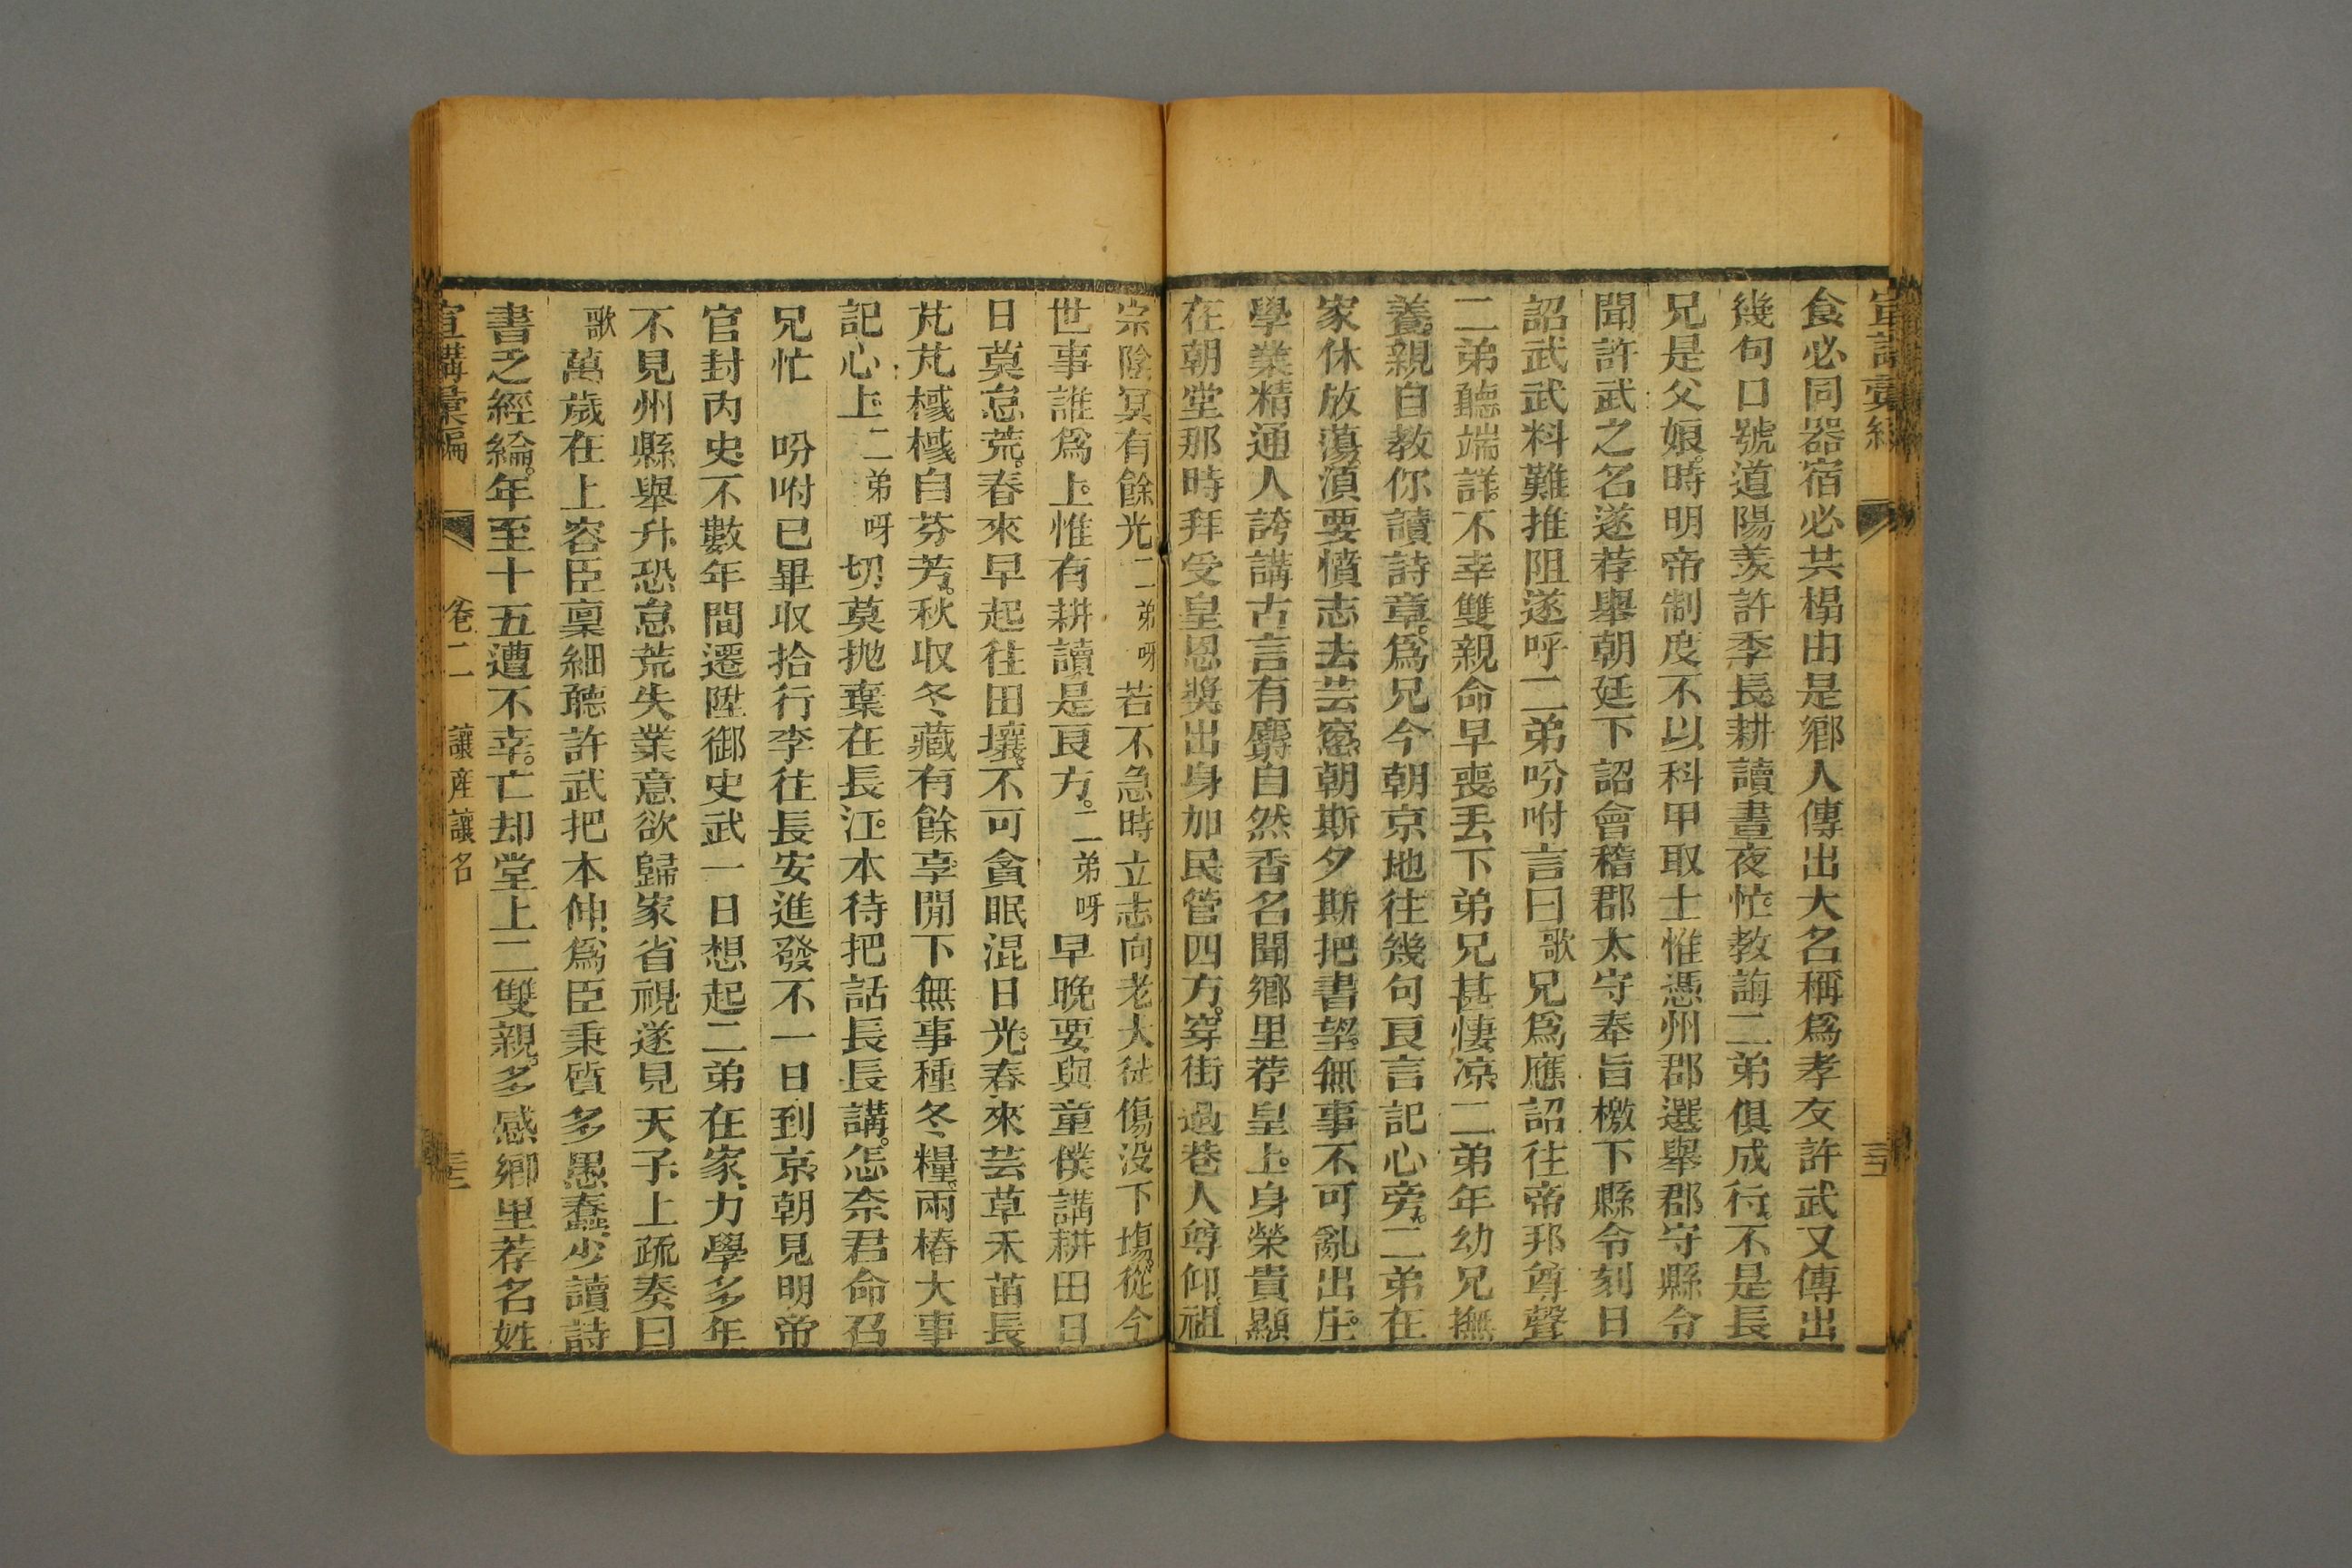 宣講彙編
食必同器宿必共榻由是鄉人傳出大名稱爲孝友許武又傳出
幾句口號道陽羨許季長耕讀晝夜忙教誨二弟俱成行不是長
兄是父娘時明帝制度不以科甲取士惟憑州郡選舉郡守縣令
聞許武之名遂荐舉朝廷下詔會稽郡太守奉旨檄下縣令刻日
詔武武料難推阻遂呼二弟吩咐言曰歌兄爲應詔往帝邦尊聲
二弟聽端詳。不幸雙親命早喪丟下弟兄甚悽凉二弟年幼兄撫
養。親自教你讀詩章。爲兄今朝京地往幾句良言記心旁。二弟在
家休放蕩須要憤志去芸窓朝斯夕斯把書望。無事不可亂出庄。
學業精通人誇講古言有麝自然香名聞鄉里荐皇上。身榮貴顯
在朝堂那時拜受皇恩獎出身加民管四方。穿街過巷人尊仰祖
宗陰冥有餘光二弟呀若不急時立志向老大徒傷没下塲。從今
世事誰爲上。惟有耕讀是良方。二弟呀早晚要與童僕講耕田日
日莫怠荒。春來早起往田壤。不可貪眠混日光。春來芸草禾苗長
芃芃棫棫自芬芳。秋收冬藏有餘享閒下無事種冬糧。兩樁大事
記心上。二弟呀切莫抛棄在長江。本待把話長長講。怎奈君命召
兄忙 吩咐已畢收拾行李往長安進發不一日到京朝見明帝
官封内史不數年間遷陞御史武一日想起二弟在家力學多年
不見州縣舉升恐怠荒失業意欲歸家省視遂見天子上疏奏曰
歌萬歲在上容臣稟細聽許武把本伸爲臣秉質多愚蠢。少讀詩
書乏經綸。年至十五遭不幸。亡却堂上二雙親。多感鄉里荐名姓
宣講彙編 卷二 讓產讓名